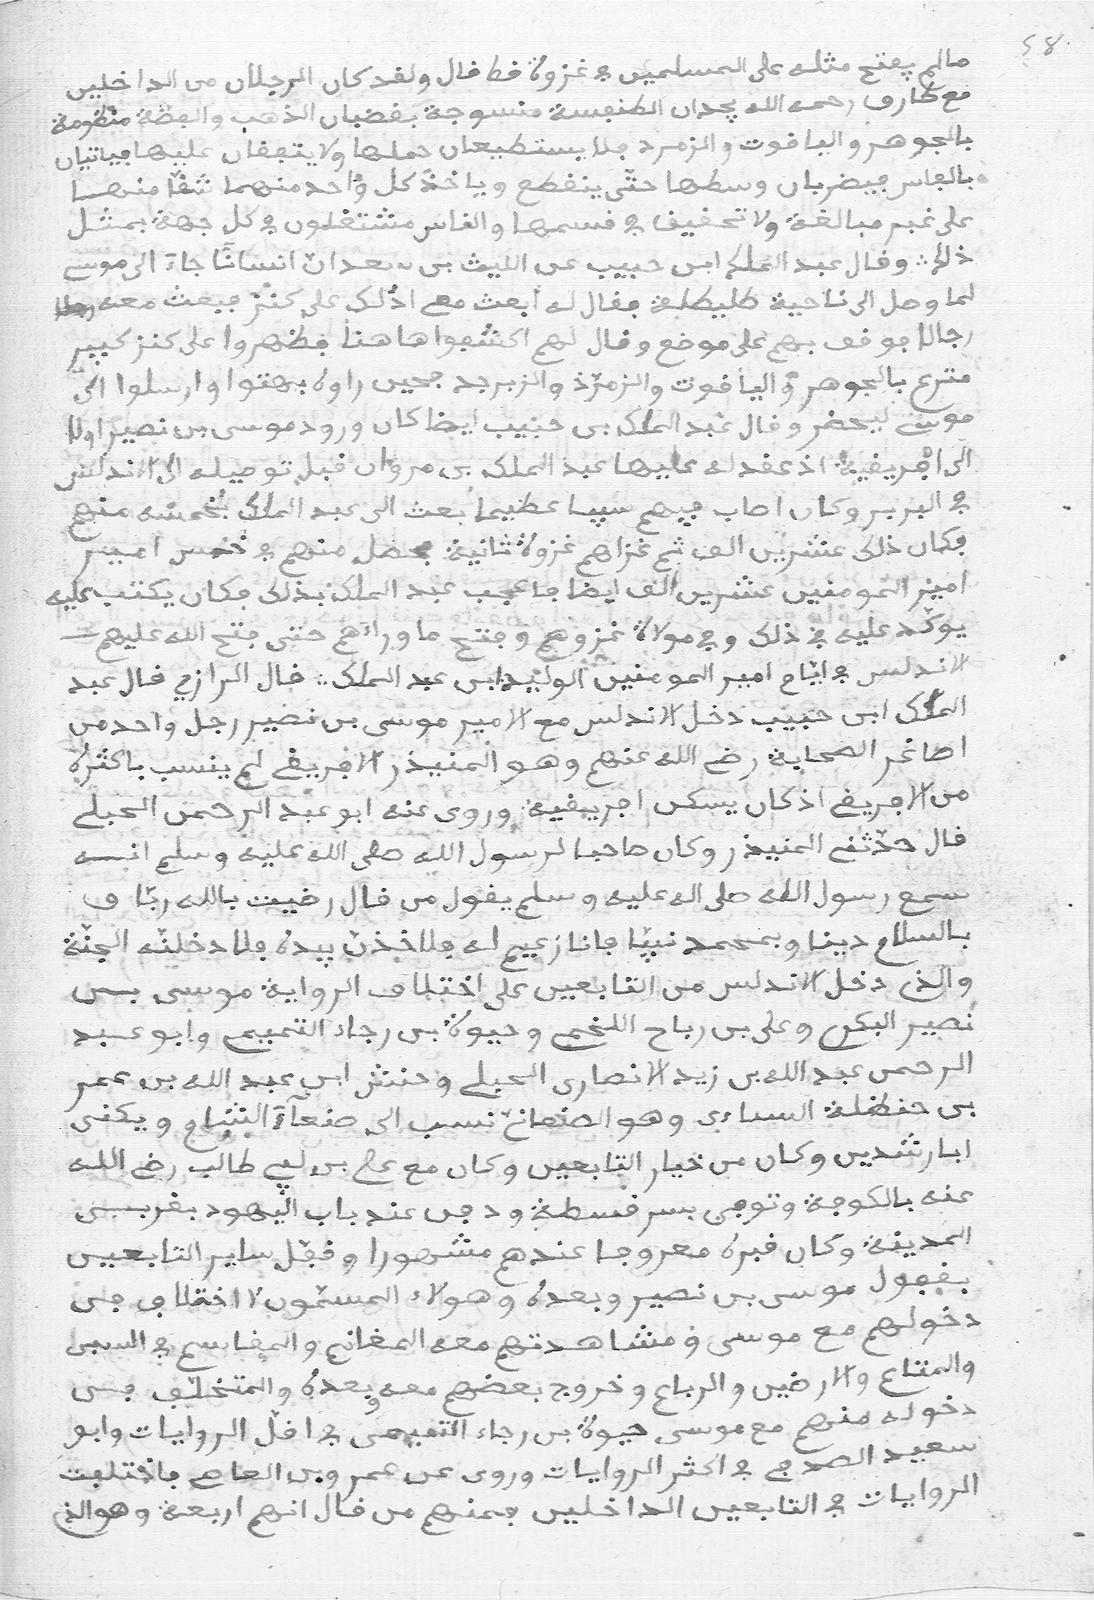 ٤٨
مالم يفتح مثله على المسلمين في غزوة قط قال ولقد كان الرجلان من الداخلين
مع طارق رحمه الله يجدان الطنفسة منسوجة بقضبان الذهب والفضة منظومة
بالجوهر والياقوت والزمرد فلا يستطيعان حملها ولا يتفقان عليها فياتيان
بالفاس فيضربان وسطها حتى ينقطع وياخذ كل واحد منهما شقا منها
على غير مبالغة ولا تحفيف في قسمها والناس مشتغلون في كل جهة بمثل
ذلك وقال عبد الملك ابن حبيب عن الليث بن سعد ان انسانا جاء الى موسى
لما وصل الى ناحية طليطلة فقال له ابعث معي ادلك على كنز فبعث معه
رجالا فوقف بهم على موضع وقال لهم اكشفوا هاهنا فظهروا على كنز كبير
مترع بالجوهر والياقوت والزمرذ والزبرجد فحين راوه بهتوا وارسلوا الى
موسى ليحضر وقال عبد الملك بن حبيب ايضا كان ورود موسى بن نصير اولا
الى افريقية اذ عقد له عليها عبد الملك بن مروان قبل توصيله الى الاندلس
في البربر وكان اصاب فيهم سبيا عظيما بعث الى عبد الملك بخمسه منهم
فكان ذلك عشرين الف ثم غزاهم غزوة ثانية فحصل منهم في خمس امير
امير المومنين عشرين الف ايضا فاعجب عبد الملك بذلك فكان يكتب عليه
يوكد عليه في ذلك وفي موالاة غزوهم وفتح ما وراءهم حتى فتح الله عليهم
الاندلس في ايام امير المومنين الوليد ابن عبد الملك قال الرازي قال عبد
الملك ابن حبيب دخل الاندلس مع الامير موسى بن نصير رجل واحد من
اصاغر الصحابة رضي الله عنهم وهو المنيذر الافريقي لم ينسب باكثره
من الافريقي اذ كان يسكن افريقية وروى عنه ابو عبد الرحمن الحبلي
قال حدثني المنيذر وكان صاحبا لرسول الله صلى الله عليه وسلم انه
سمع رسول الله صلى اله عليه وسلم يقول من قال رضيت بالله ربا و
بالسلام دينا وبمحمد نبيا فانا زعيم له فلاخذن بيده فلادخلنه الجنة
والذي دخل الاندلس من التابعين على اختلاف الرواية موسى بن
نصير البكري وعلي بن رباح اللخمي وحيوة بن رجاء التميمي وابو عبد
الرحمن عبد الله بن زيد الانصارى الحبلي وحنش ابن عبد الله بن عمر
بن حنظلة السباءى وهو الصنعاني نسب الى صنعاء الشام ويكنى
ابا رشدين وكان من خيار التابعين وكان مع على بن ابي طالب رضي الله
عنه بالكوفة وتوفي بسرقسطة ودفن عند باب اليهود بغربي
المدينة وكان قبره معروفا عندهم مشهورا وقفل ساير التابعين
بقفول موسى بن نصير وبعده وهولاء المسمون لا اختلاف في
دخولهم مع موسى ومشاهدتهم معه المغانم والمقاسم في السبي
والمتاع والارضين والرباع وخروج بعضهم معه وبعده والمتخلف في
دخوله منهم مع موسى حيوة بن رجاء التميمى في اقل الروايات وابو
سعيد الصدفي في اكثر الروايات وروى عن عمرو بن العاصي فاختلفت
الروايات في التابعين الداخلين فمنهم من قال انهم اربعة وهو الذي